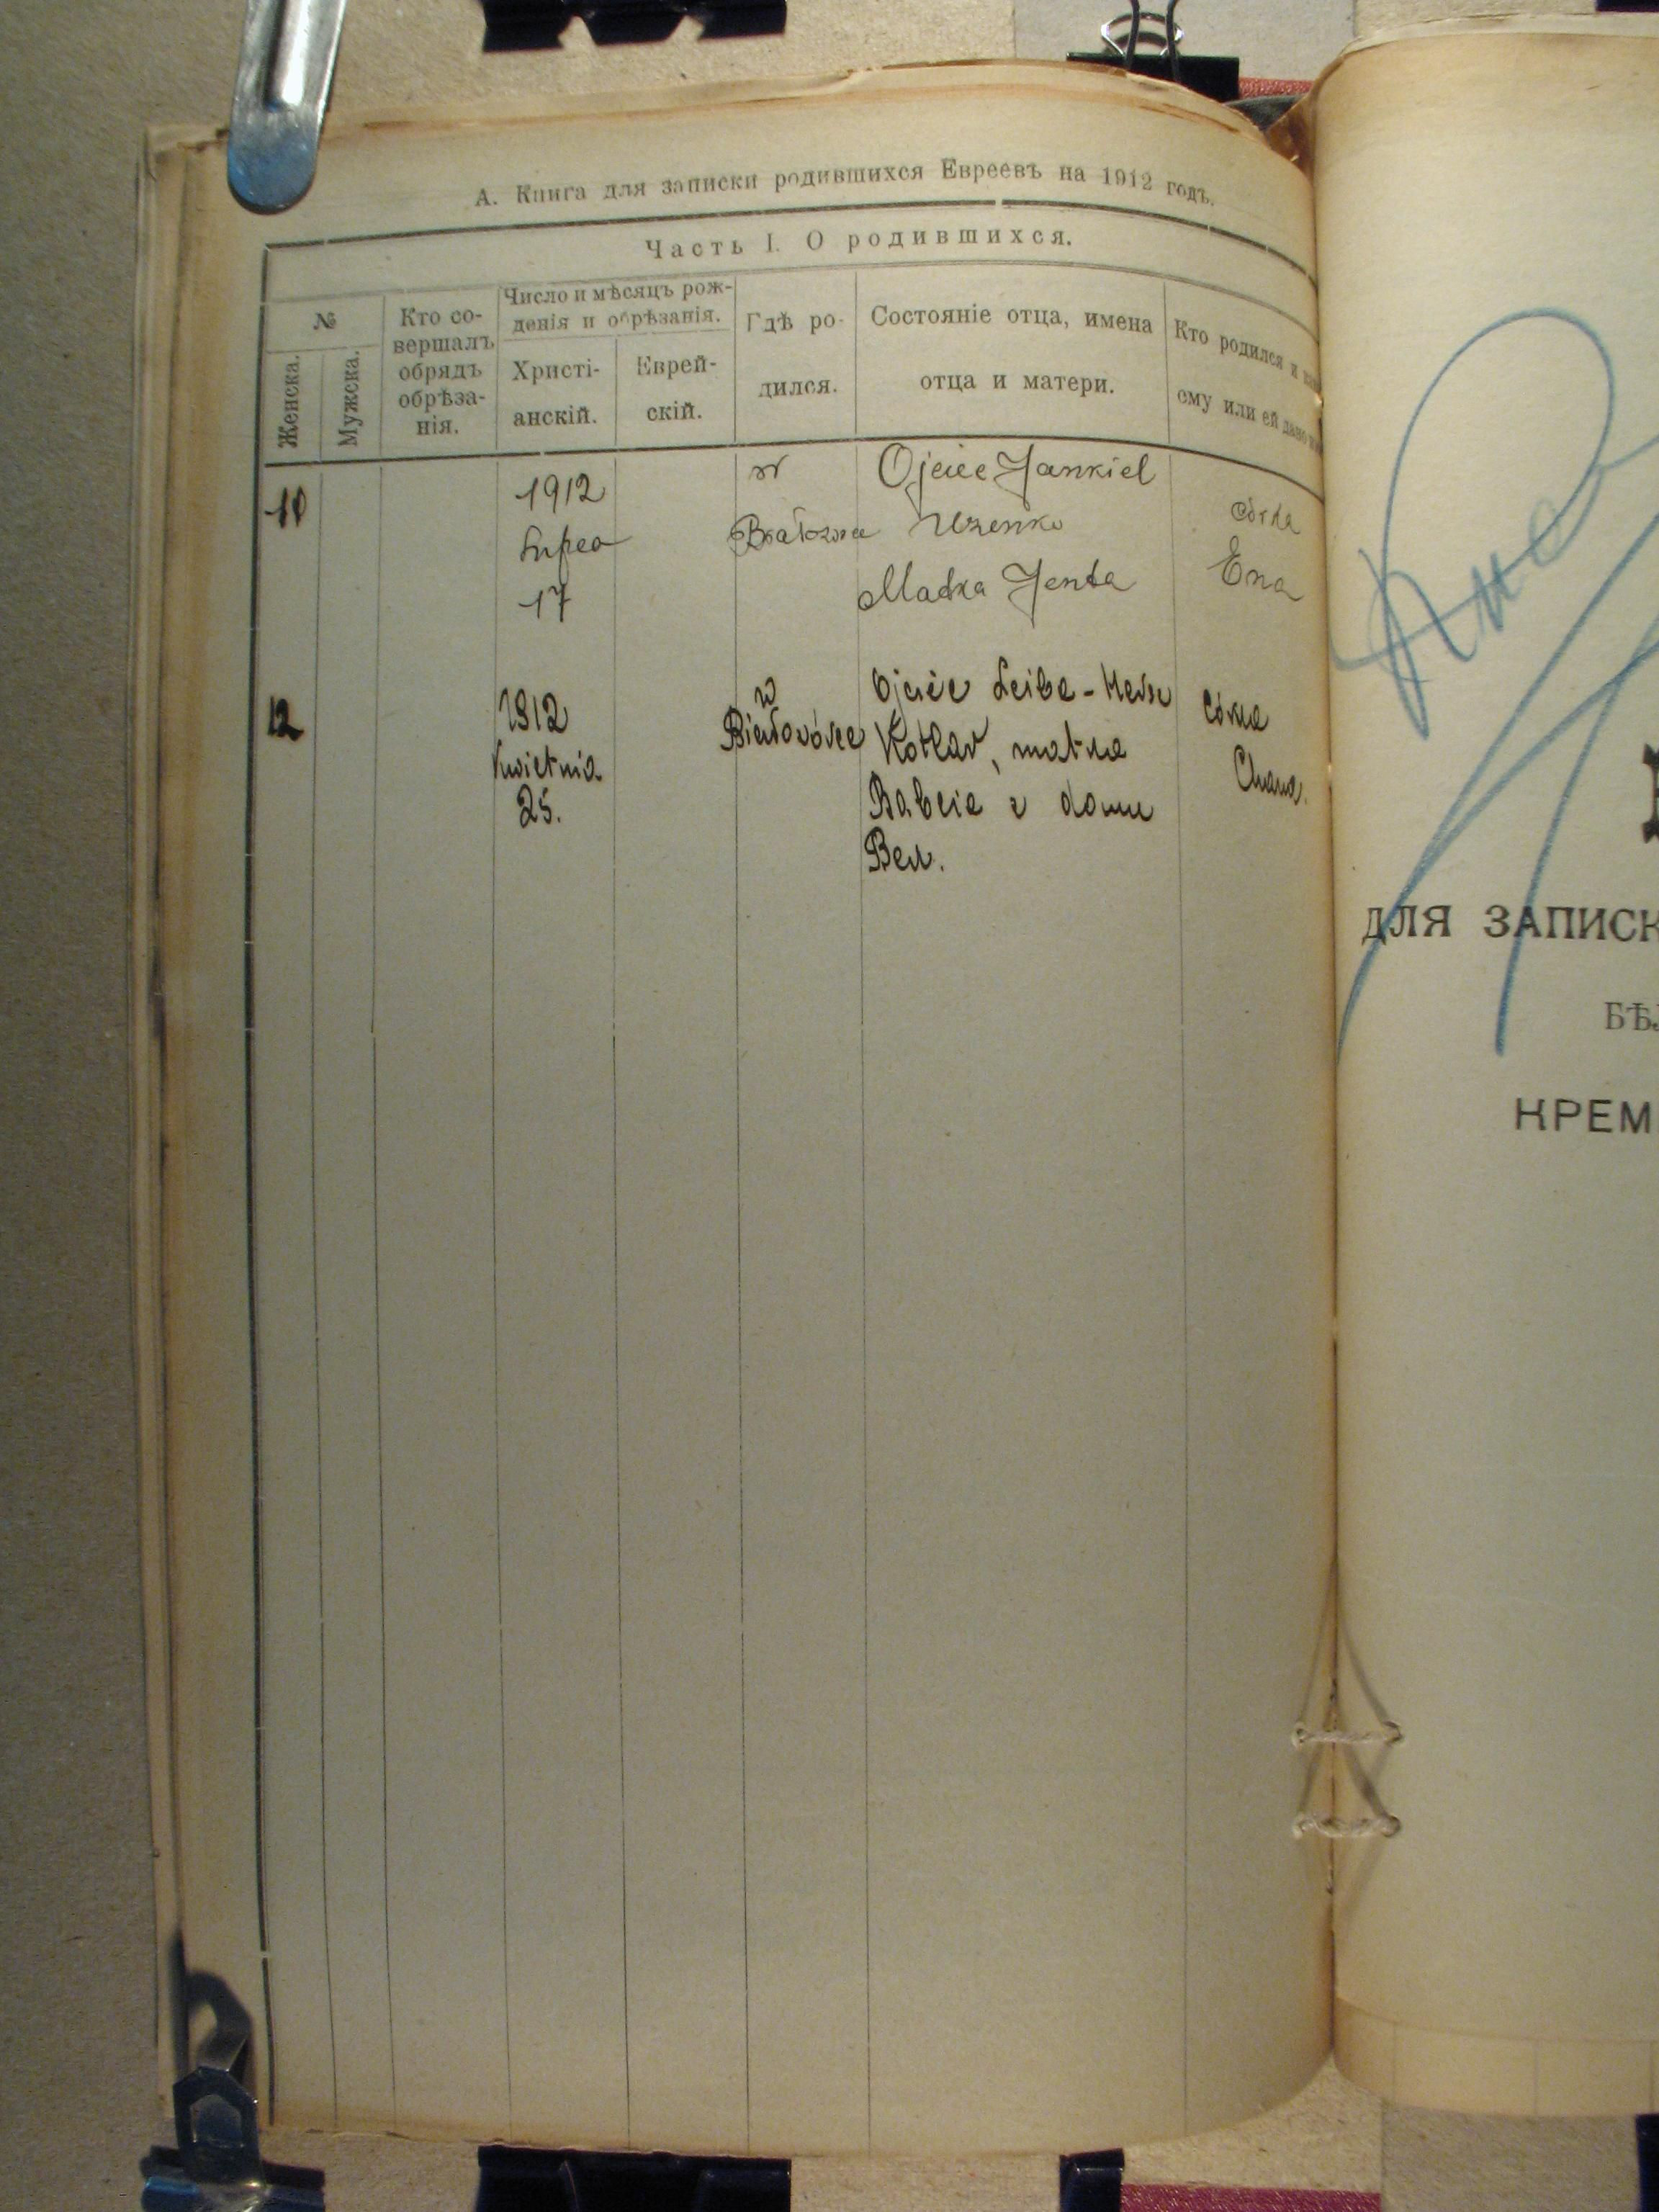 А. Книга для записки родившихся Евреевъ на 1912 годъ.
Часть I. О родившихся.
№
Женска.
Мужска.
Кто со-
вершалъ
обрядъ
обрѣза-
нія.
Число и мѣсяцъ рож-
денія и обрѣзанія.
Христі-
анскій.
Еврей-
скій.
Гдѣ ро-
дился.
Состояніе отца, имена
отца и матери.
Кто родился и
ему или ей дано
1912
Lipca
17
w
Ojciec Jankiel
Matka Jenta
córka
Ena
12
1912
Kwietnia
25.
w
Ojciec Leiba-
Kotlar, matka
Babcia z domu
córka
Chana.
ДЛЯ ЗАПИСК
БѢЛ
КРЕМ